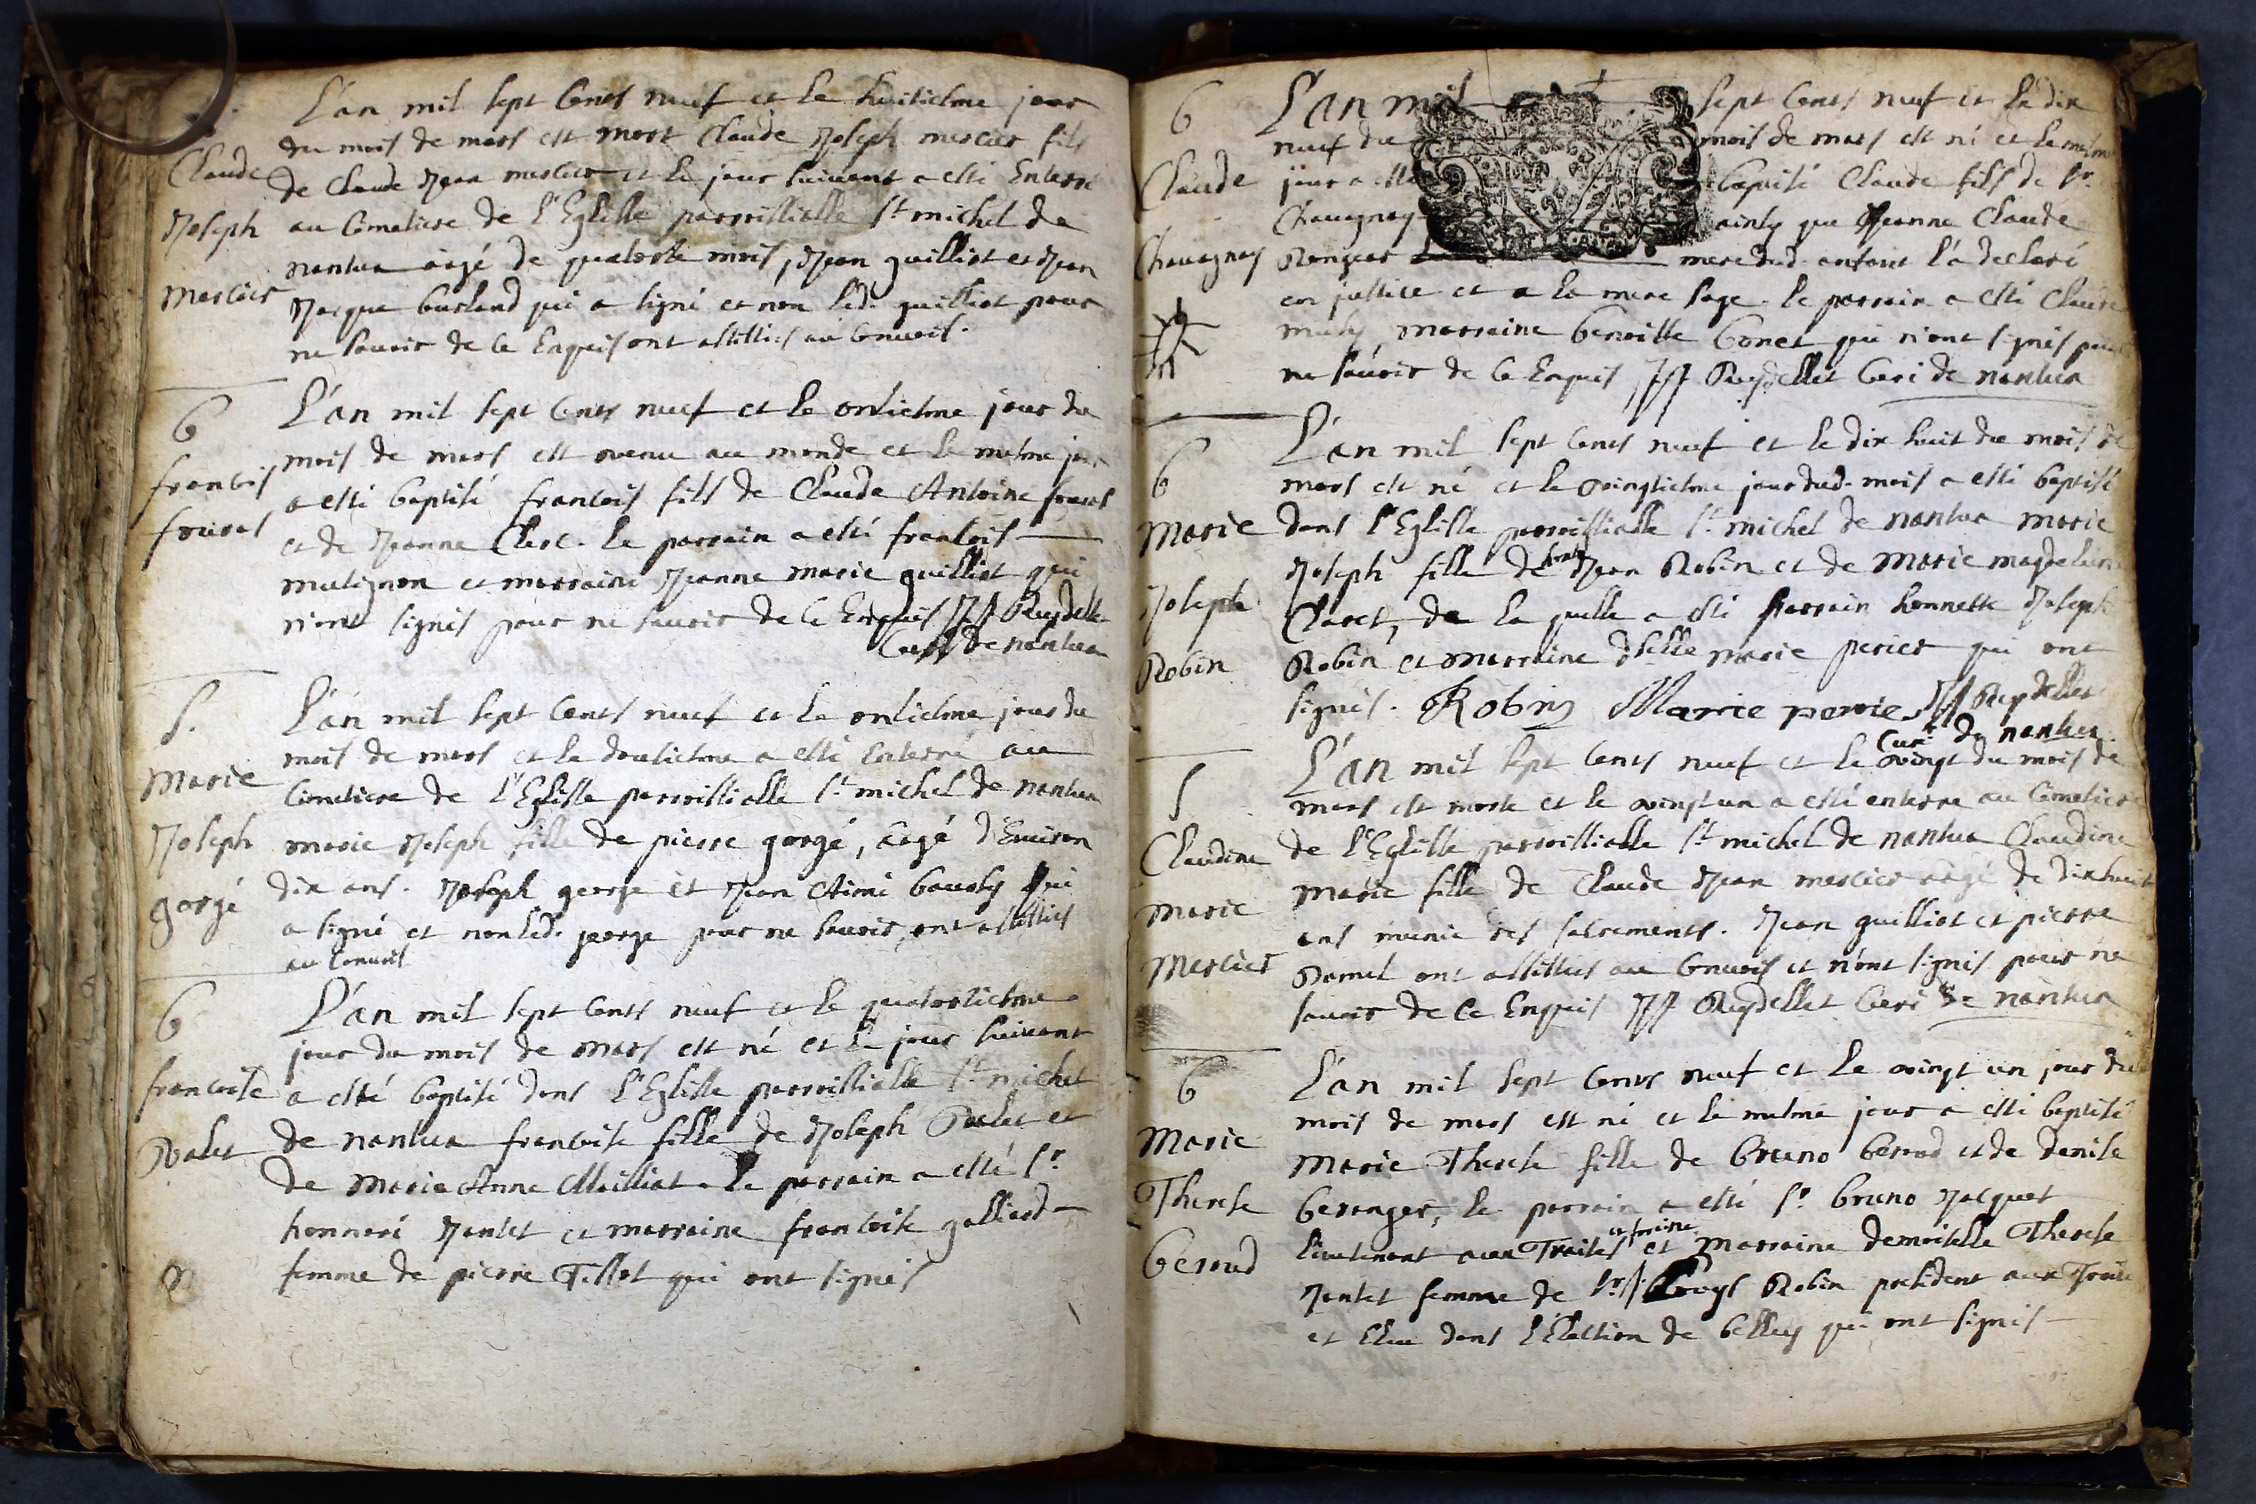 S.
Claude
Joseph
mercier
L'an mil sept cents neuf et le huitiesme jour
du mois de mars est mort Claude Joseph mercier fils
de Claude Jean mercier et le jour suivant a esté Enterré
au Cimetiere de l'Eglisse parroissialle St michel de
nantua aagé de quatorze mois, Jean guilliot et Jean
Jacque burland qui a signé et non led. guilliot pour
ne scavoir de ce Enquis ont assistés au Convois.
B
francois
L'an mil sept cents neuf et le onziesme jour du
mois de mars est venu au monde et le mesme jour
a esté baptisé francois fils de Claude Antoine
et de Jeanne Clerc. le parrain a esté francois
mulignon et marraine Jeanne marie guilliot qui
n'ont signés pour ne scavoir de ce Enquis JJ Reydellet
Curé de nantua
S.
Marie
Joseph
gorgé
L'an mil sept cents neuf et le onziesme jour du
mois de mars et le douziesme a esté Enterré au
Cimetiere de l'Eglisse parroissialle St michel de nantua
marie Joseph fille de pierre gorgé, aagé d'Environ
dix ans. Joseph george et Jean Aimé qui
a signé et non led. george pour ne scavoir, ont assistés
au Convois
B
francoise
Ralet
L'an mil sept cents neuf et le quatorziesme
jour du mois de mars est né et le jour suivant
a esté baptisé dans l'Eglisse parroissialle St michel
de nantua francoise fille de Joseph Ralet et
de Marie Anne Maillat. le parrain a esté Sr
honnoré Jantet et marraine francoise galliard
femme de pierre Tillot qui ont signés
B
Claude
Chavagnay
L'an mil sept cents neuf et le dix
neuf du mois de mars est né et le mesme
jour a esté baptisé Claude fils de Sr
Chavagnay ainsy que Jeanne Claude
Rongier mere dud. enfant l'a declaré
en justice et a la mere sage. le parrain a esté Claude
, marraine benoitte bonet qui n'ont signés pour
ne scavoir de ce Enquis JJ Reydellet Curé de nantua
B
Marie
Joseph
Robin
L'an mil sept cents neuf et le dix huit du mois de
mars est né et le vingtiesme jour dud. mois a esté baptisé
dans l'Eglisse parroissialle St michel de nantua marie
Joseph fille de Jean Robin et de Marie magdelaine
Claret, de la quelle a esté parrain honneste Joseph
Robin et marraine dselle marie perier qui ont
signés. Robin Marie perrie JJ Reydellet
Curé de nantua
S
Claudine
marie
Mercier
L'an mil sept cents neuf et le vingt du mois de
mars est morte et le vingt un a esté enterre au Cimetiere
de l'Eglisse parroissialle St michel de nantua Claudine
Marie fille de Claude Jean mercier aagé de dix huit
ans munie des sacrements. Jean guilliot et pierre
ont assistés au Convois et n'ont signés pour ne
scavoir de ce Enquis JJ Reydellet Curé de nantua
B
Marie
Therese
beroud
L'an mil sept cents neuf et le vingt un jour du
mois de mars est né et le mesme jour a esté baptisé
Marie Therese fille de bruno beroud et de denise
beranger, le parrain a esté Sr bruno Jacquet
lieutenant aux Traites et marraine demoiselle Therese
Jantet femme de Sr Louys Robin president aux Traites
et Elu dans l'Election de belley qui ont signés